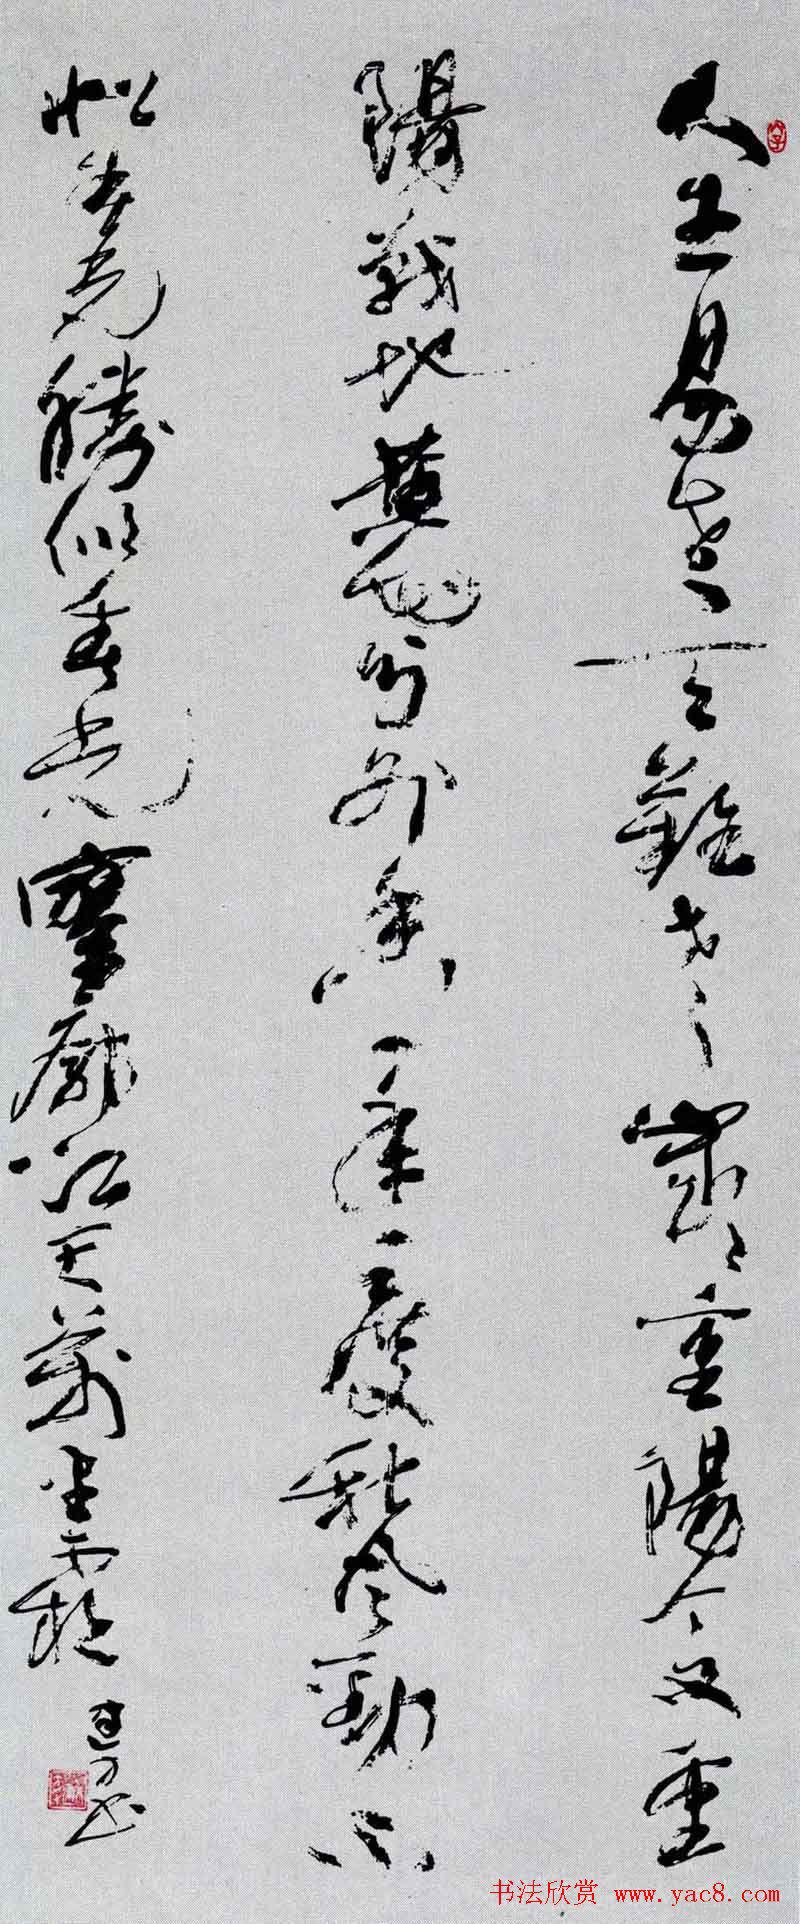 人生易老天難老歲々重陽今又重
陽戰地黃花分外香一年一度秋風勁不
似春光勝似春光寥廓江天萬里霜
书法欣赏 www.yac8.com